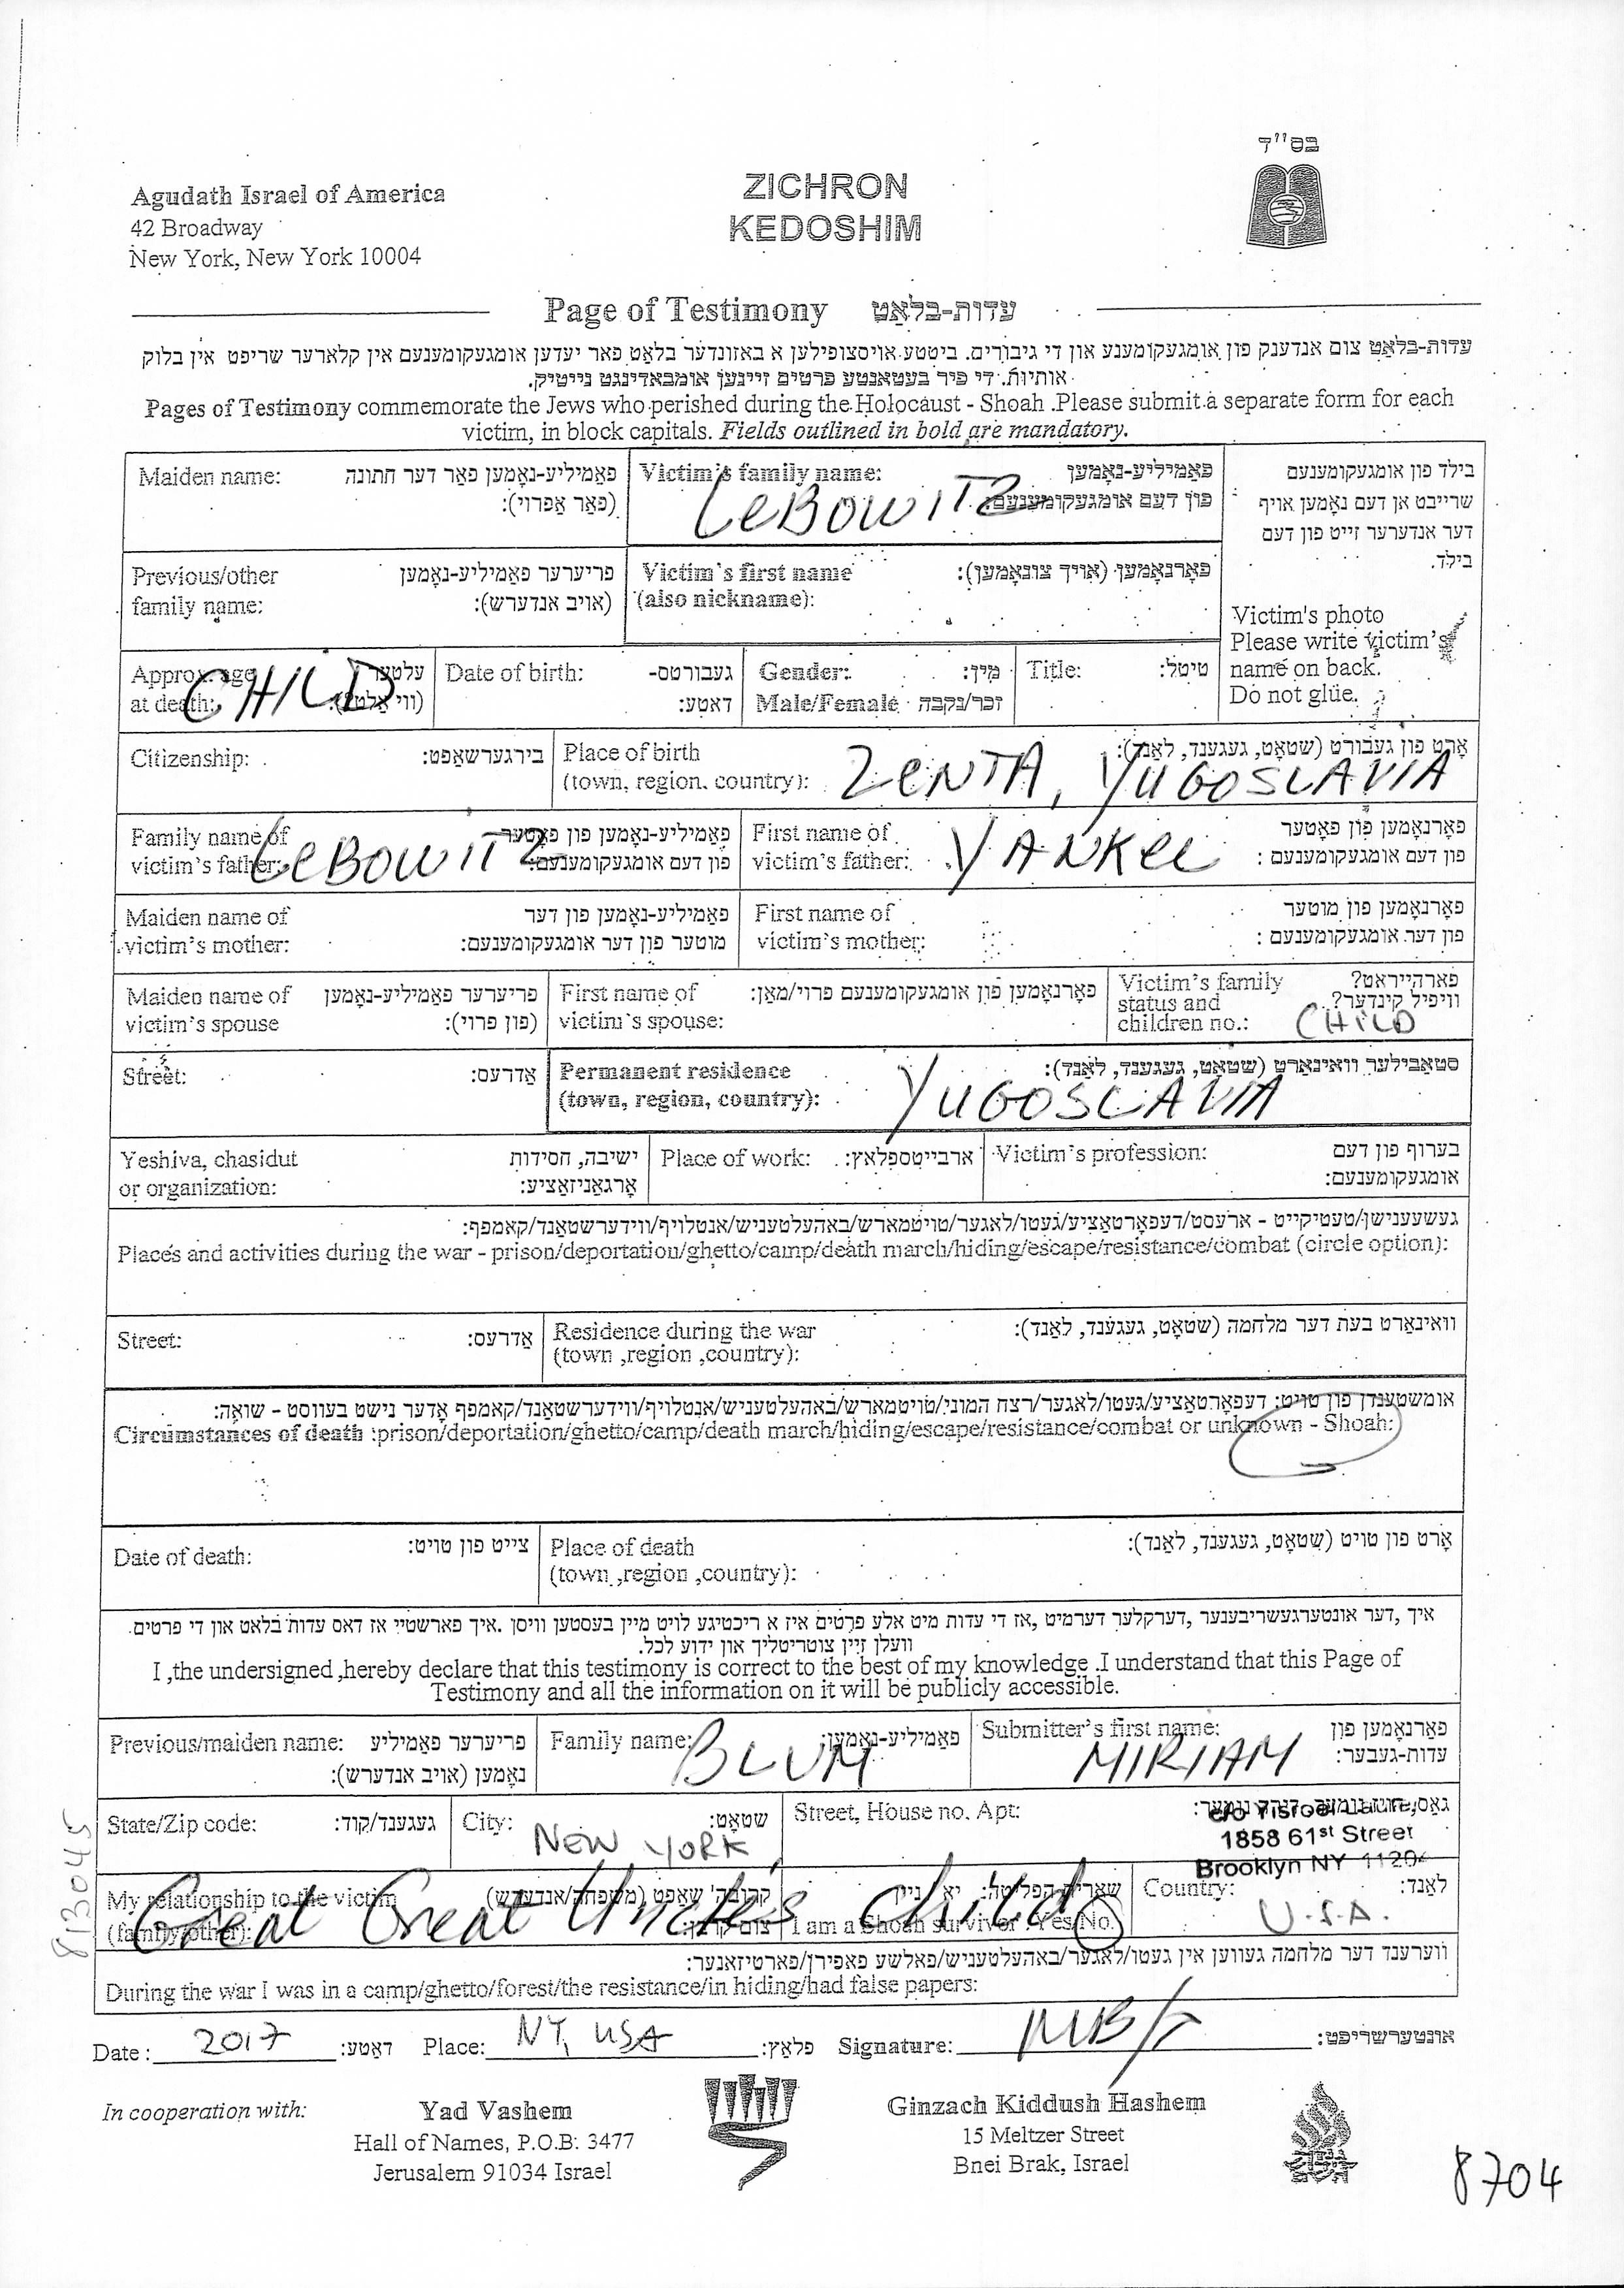 בס"ד
Agudath Israel of America
42 Broadway
New York, New York 10004
ZICHRON
KEDOSHIM
Page of Testimony עדות-בלאַט
עדות-בלאַט צום אנדענק פון אומגעקומענע און די גיבורים. ביטטע אויסצופילען א באזונדער בלאַט פאר יעדען אומגעקומענעם אין קלארער שריפט אין בלוק
אותיות. די פיר בעטאנטע פרטים זיינען אומבאדינגט נייטיק.
Pages of Testimony commemorate the Jews who perished during the Holocaust - Shoah .Please submit a separate form for each
victim, in block capitals. Fields outlined in bold are mandatory.
Maiden name: פאַמיליע-נאָמען פאַר דער חתונה
(פאַר אַפרוי):
Victim's family name: פאַמיליע-נאָמען
פון דעם אומגעקומענעם:
LeBOWITZ
בילד פון אומגעקומענעם
שרייבט אן דעם נאָמען אויף
דער אנדערער זייט פון דעם
בילד.
Victim's photo
Please write victim's
name on back.
Do not glue.
Previous/other פריערער פאַמיליע-נאָמען
family name: (אויב אנדערש):
Victim's first name פאָרנאָמען (אויך צונאָמען):
(also nickname):
Approx. age עלטער
at death: (ווי אַלט?):
CHILD
Date of birth: געבורטס-
דאַטע:
Gender: מין:
Male/Female זכר/נקבה
Title: טיטל:
Citizenship: בירגערשאַפט:
Place of birth אָרט פון געבורט (שטאָט, געגענד, לאַנד):
(town, region, country): ZENTA, YUGOSLAVIA
Family name of פאַמיליע-נאָמען פון פאָטער
victim's father: פון דעם אומגעקומענעם:
LeBOWITZ
First name of פאָרנאָמען פון פאָטער
victim's father: פון דעם אומגעקומענעם :
YANKEL
Maiden name of פאַמיליע-נאָמען פון דער
victim's mother: מוטער פון דער אומגעקומענעם:
First name of פאָרנאָמען פון מוטער
victim's mother: פון דער אומגעקומענעם :
Maiden name of פריערער פאַמיליע-נאָמען
victim's spouse (פון פרוי):
First name of פאָרנאָמען פון אומגעקומענעם פרוי/מאַן:
victim's spouse:
Victim's family פארהייראט?
status and וויפיל קינדער?
children no.: CHILD
Street: אַדרעס:
Permanent residence סטאַבילער וואוינאָרט (שטאָט, געגענד, לאַנד):
(town, region, country): YUGOSLAVIA
Yeshiva, chasidut ישיבה, חסידות
or organization: אָרגאַניזאַציע:
Place of work: ארבייטספלאץ:
Victim's profession: בערוף פון דעם
אומגעקומענעם:
געשעענישן/טעטיקייט - ארעסט/דעפּאָרטאַציע/געטו/לאגער/טויטמארש/באהעלטעניש/אנטלויף/ווידערשטאַנד/קאמפף:
Places and activities during the war - prison/deportation/ghetto/camp/death march/hiding/escape/resistance/combat (circle option):
Street: אַדרעס:
Residence during the war וואוינאָרט בעת דער מלחמה (שטאָט, געגענד, לאַנד):
(town ,region ,country):
אומשטענדן פון טויט: דעפּאָרטאַציע/געטו/לאגער/רצח המוני/טויטמארש/באהעלטעניש/אנטלויף/ווידערשטאַנד/קאמפף אָדער נישט בעוואוסט - שואה:
Circumstances of death :prison/deportation/ghetto/camp/death march/hiding/escape/resistance/combat or unknown - Shoah:
Date of death: צייט פון טויט:
Place of death אָרט פון טויט (שטאָט, געגענד, לאַנד):
(town ,region ,country):
איך ,דער אונטערגעשריבענער ,דערקלער דערמיט ,אז די עדות מיט אלע פרטים איז א ריכטיגע לויט מיין בעסטען וויסן .איך פארשטיי אז דאס עדות בלאט און די פרטים
וועלן זיין צוטריטליך און ידוע לכל.
I ,the undersigned ,hereby declare that this testimony is correct to the best of my knowledge .I understand that this Page of
Testimony and all the information on it will be publicly accessible.
Previous/maiden name: פריערער פאַמיליע
נאָמען (אויב אנדערש):
Family name: פאַמיליע-נאָמען:
BLUM
Submitter's first name: פאָרנאָמען פון
עדות-געבער:
MIRIAM
State/Zip code: געגענד/קוד:
City: שטאָט:
NEW YORK
Street, House no. Apt:
c/o Yisroel
1858 61st Street
Brooklyn NY 11204
My relationship to the victim
(family/other):
Great Great Uncle's child
I am a Shoah survivor: Yes/No.
Country: לאַנד:
U.S.A.
ווערענד דער מלחמה געווען אין געטו/לאַגער/באַהעלטעניש/פאלשע פאפירן/פארטיזאנער:
During the war I was in a camp/ghetto/forest/the resistance/in hiding/had false papers:
Date : 2017 דאַטע: Place: NY, USA פלאַץ: Signature: MB אונטערשריפט:
In cooperation with:
Yad Vashem
Hall of Names, P.O.B. 3477
Jerusalem 91034 Israel
Ginzach Kiddush Hashem
15 Meltzer Street
Bnei Brak, Israel
8704
813045